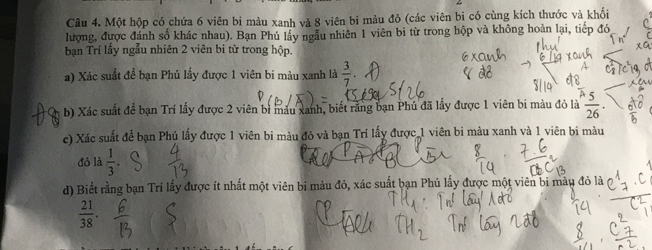 Câu 4. Một hộp có chứa 6 viên bi màu xanh và 8 viên bi màu đỏ (các viên bi có cùng kích thước và khối
lượng, được đánh số khác nhau). Bạn Phú lấy ngẫu nhiên 1 viên bi từ trong hộp và không hoàn lại, tiếp đó
bạn Trí lấy ngẫu nhiên 2 viên bi từ trong hộp.
6 xanh
8 đỏ
Phú
6/14 xanh
8/14 đỏ
Trí
a) Xác suất để bạn Phú lấy được 1 viên bi màu xanh là 3/7. Đ
P(B/A) = 5/26
b) Xác suất để bạn Trí lấy được 2 viên bi màu xanh, biết rằng bạn Phú đã lấy được 1 viên bi màu đỏ là 5/26.
c) Xác suất để bạn Phú lấy được 1 viên bi màu đỏ và bạn Trí lấy được 1 viên bi màu xanh và 1 viên bi màu
đỏ là 1/3. S 4/13
8/14 . 7.6
d) Biết rằng bạn Trí lấy được ít nhất một viên bi màu đỏ, xác suất bạn Phú lấy được một viên bi màu đỏ là
21/38. 6/13 S
TH1: Trí lấy 1 đỏ
TH2 Trí lấy 2 đỏ